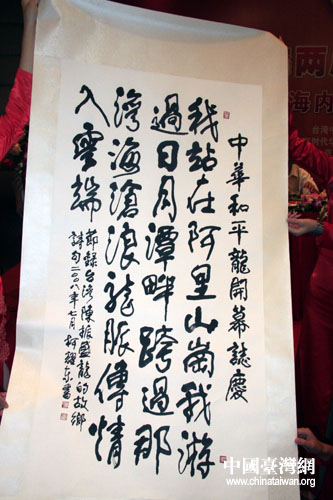 中華和平龍開幕誌慶
我站在阿里山崗我游
過日月潭畔跨過那
灣海滄浪龍脈傳情
入雲端
節錄台灣陳振盛龍的故鄉
詩句二〇〇八年七月柯耀東書
兩
海内
中國臺灣網
www.chinataiwan.org